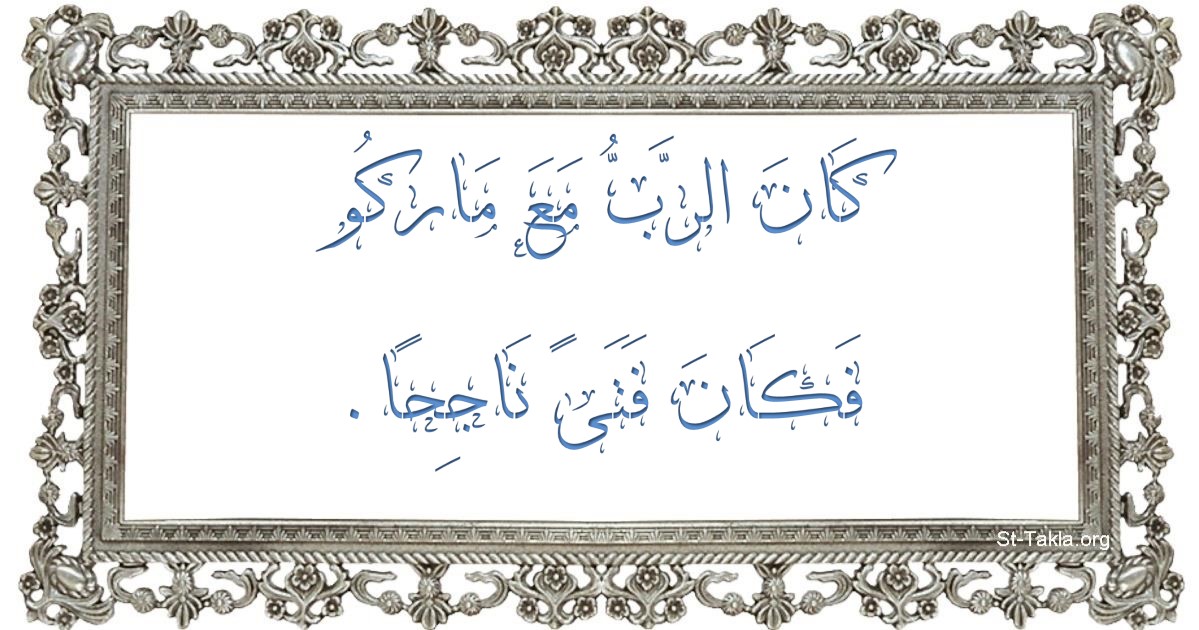 كَانَ الرَّبُّ مَعَ مَاركُو
فَكَانَ فَتَىً نَاجِحًا.
St-Takla.org